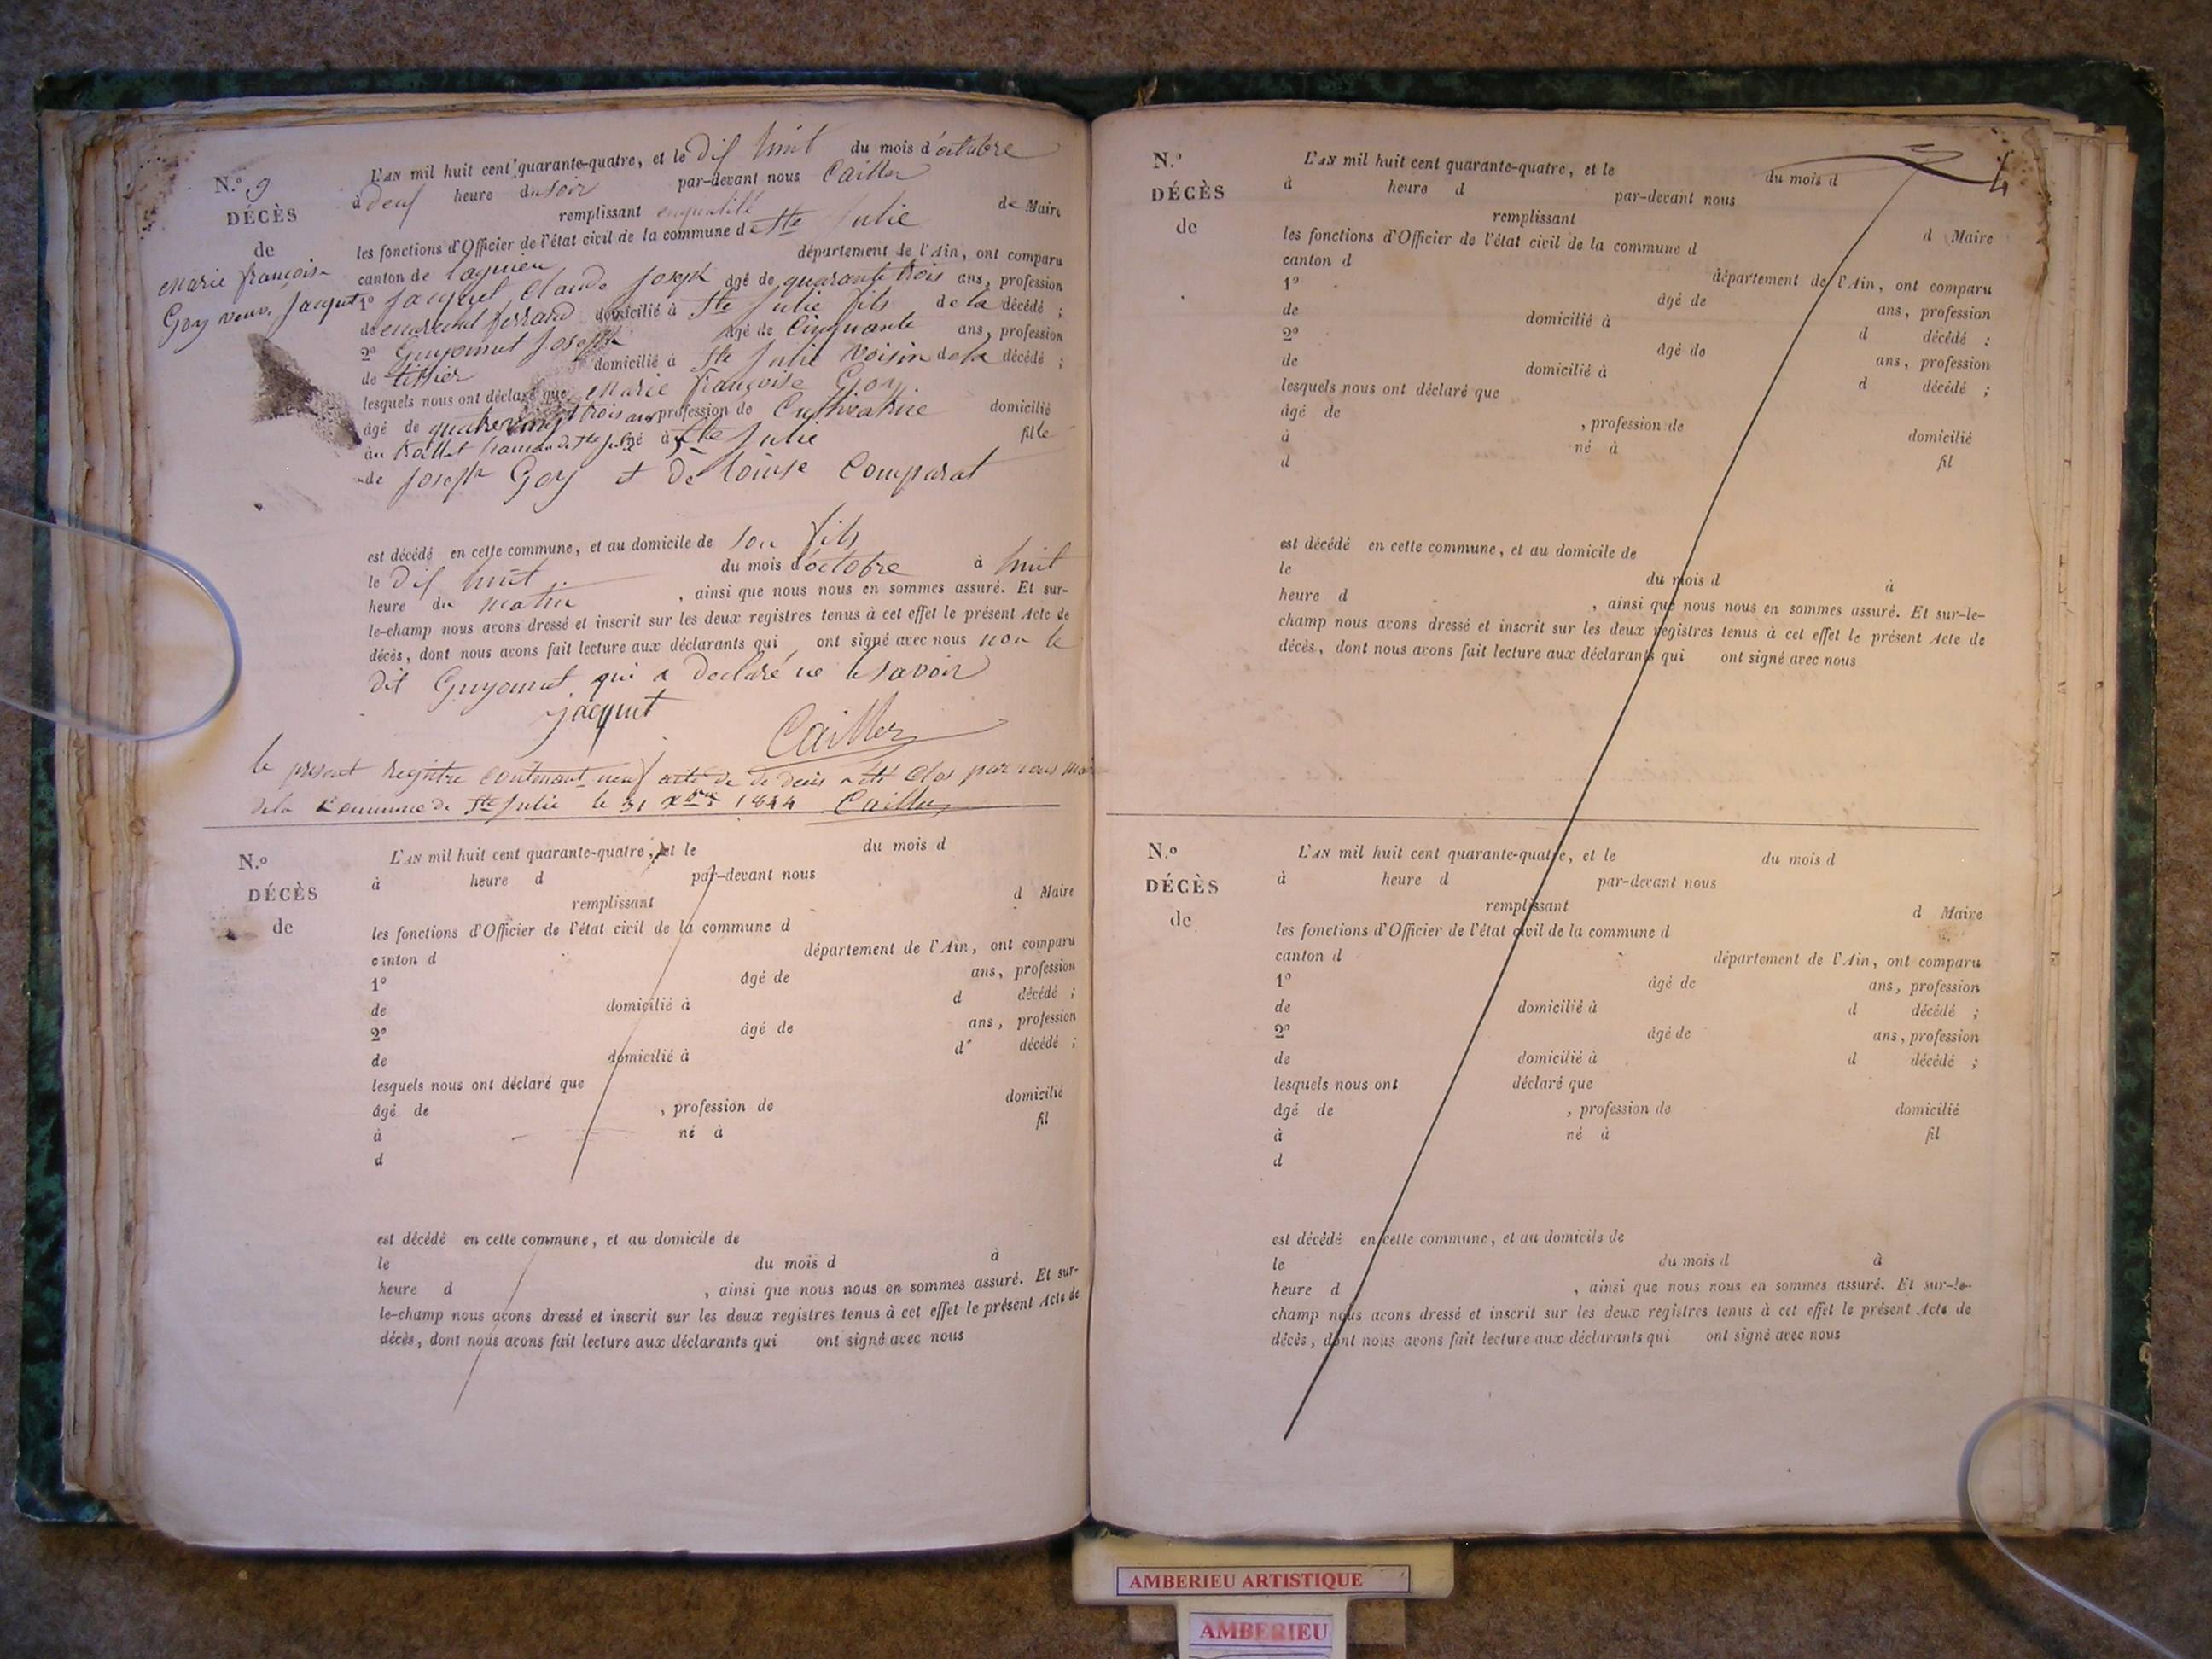 N.º 9
DÉCÈS
de
Marie françoise
Goy veuve Jacquet
L'AN mil huit cent quarante-quatre, et le dix huit du mois d'octobre
à deux heure du soir par-devant nous Cailler
remplissant en qualité de Maire
les fonctions d'Officier de l'état civil de la commune de Ste Julie
canton de lagnieu département de l'Ain, ont comparu
1º Jacquet Claude Joseph âgé de quarante trois ans, profession
de marechal ferrand domicilié à Ste Julie fils de la décédé ;
2º Guyonnet Joseph âgé de Cinquante ans, profession
de tissier domicilié à Ste Julie Voisin de la décédé ;
lesquels nous ont déclaré que Marie françoise Goy
âgé de quatre vingt trois ans profession de Cultivatrice domicilié
au trollet hameau de Ste Julie né à Ste Julie fille
de Joseph Goy et de Louise Comparat
est décédé en cette commune, et au domicile de son fils
le dix huit du mois d'octobre à huit
heure du matin , ainsi que nous nous en sommes assuré. Et sur-
le-champ nous avons dressé et inscrit sur les deux registres tenus à cet effet le présent Acte de
décès, dont nous avons fait lecture aux déclarants qui ont signé avec nous non le
dit Guyonnet qui a declaré ne le savoir
jacquet Cailler
le present registre contenant neuf acte de de deces a été Clos par nous
de la Commune de Ste Julie le 31 Xbre 1844 Cailler
N.º
DÉCÈS
de
L'AN mil huit cent quarante-quatre, et le du mois d
à heure d par-devant nous
remplissant d Maire
les fonctions d'Officier de l'état civil de la commune d
canton d département de l'Ain, ont comparu
1º âgé de ans, profession
de domicilié à d décédé ;
2º âgé de ans, profession
de domicilié à d décédé ;
lesquels nous ont déclaré que
âgé de , profession de domicilié
à né à fil
d
est décédé en cette commune, et au domicile de
le du mois d à
heure d , ainsi que nous nous en sommes assuré. Et sur-
le-champ nous avons dressé et inscrit sur les deux registres tenus à cet effet le présent Acte de
décès, dont nous avons fait lecture aux déclarants qui ont signé avec nous
4
N.º
DÉCÈS
de
L'AN mil huit cent quarante-quatre, et le du mois d
à heure d par-devant nous
remplissant d Maire
les fonctions d'Officier de l'état civil de la commune d
canton d département de l'Ain, ont comparu
1º âgé de ans, profession
de domicilié à d décédé ;
2º âgé de ans, profession
de domicilié à d décédé ;
lesquels nous ont déclaré que
âgé de , profession de domicilié
à né à fil
d
est décédé en cette commune, et au domicile de
le du mois d à
heure d , ainsi que nous nous en sommes assuré. Et sur-le-
champ nous avons dressé et inscrit sur les deux registres tenus à cet effet le présent Acte de
décès, dont nous avons fait lecture aux déclarants qui ont signé avec nous
N.º
DÉCÈS
de
L'AN mil huit cent quarante-quatre, et le du mois d
à heure d par-devant nous
remplissant d Maire
les fonctions d'Officier de l'état civil de la commune d
canton d département de l'Ain, ont comparu
1º âgé de ans, profession
de domicilié à d décédé ;
2º âgé de ans, profession
de domicilié à d décédé ;
lesquels nous ont déclaré que
âgé de , profession de domicilié
à né à fil
d
est décédé en cette commune, et au domicile de
le du mois d à
heure d , ainsi que nous nous en sommes assuré. Et sur-le-
champ nous avons dressé et inscrit sur les deux registres tenus à cet effet le présent Acte de
décès, dont nous avons fait lecture aux déclarants qui ont signé avec nous
AMBERIEU ARTISTIQUE
AMBERIEU